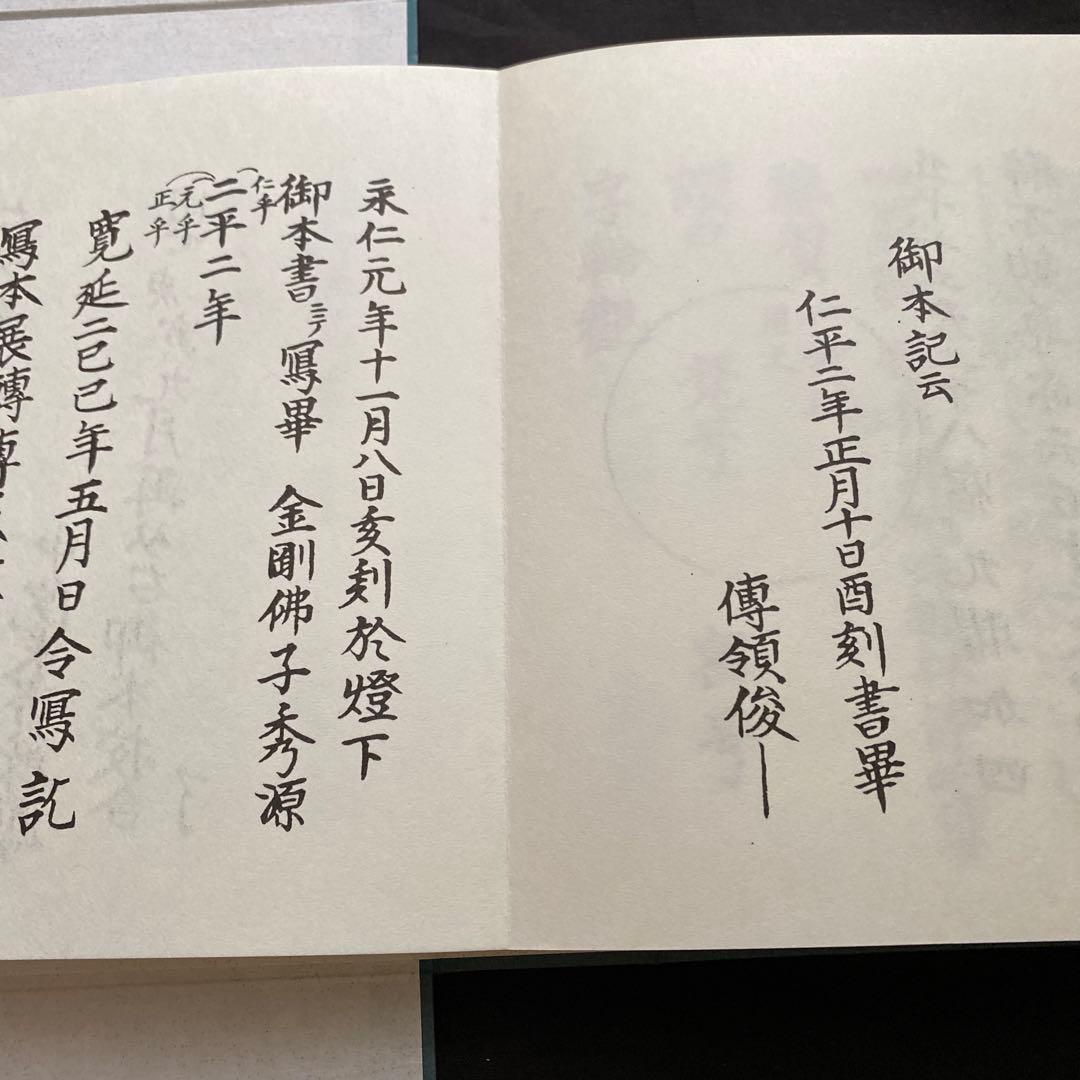 御本記云
仁平二年正月十日酉刻書畢
傳領俊―
永仁元年十一月八日亥刻於燈下
御本書ミテ寫畢　金剛佛子秀源
仁乎
二平二年
元乎
正乎
寛延二己巳年五月日令寫訖
寫本展轉傳